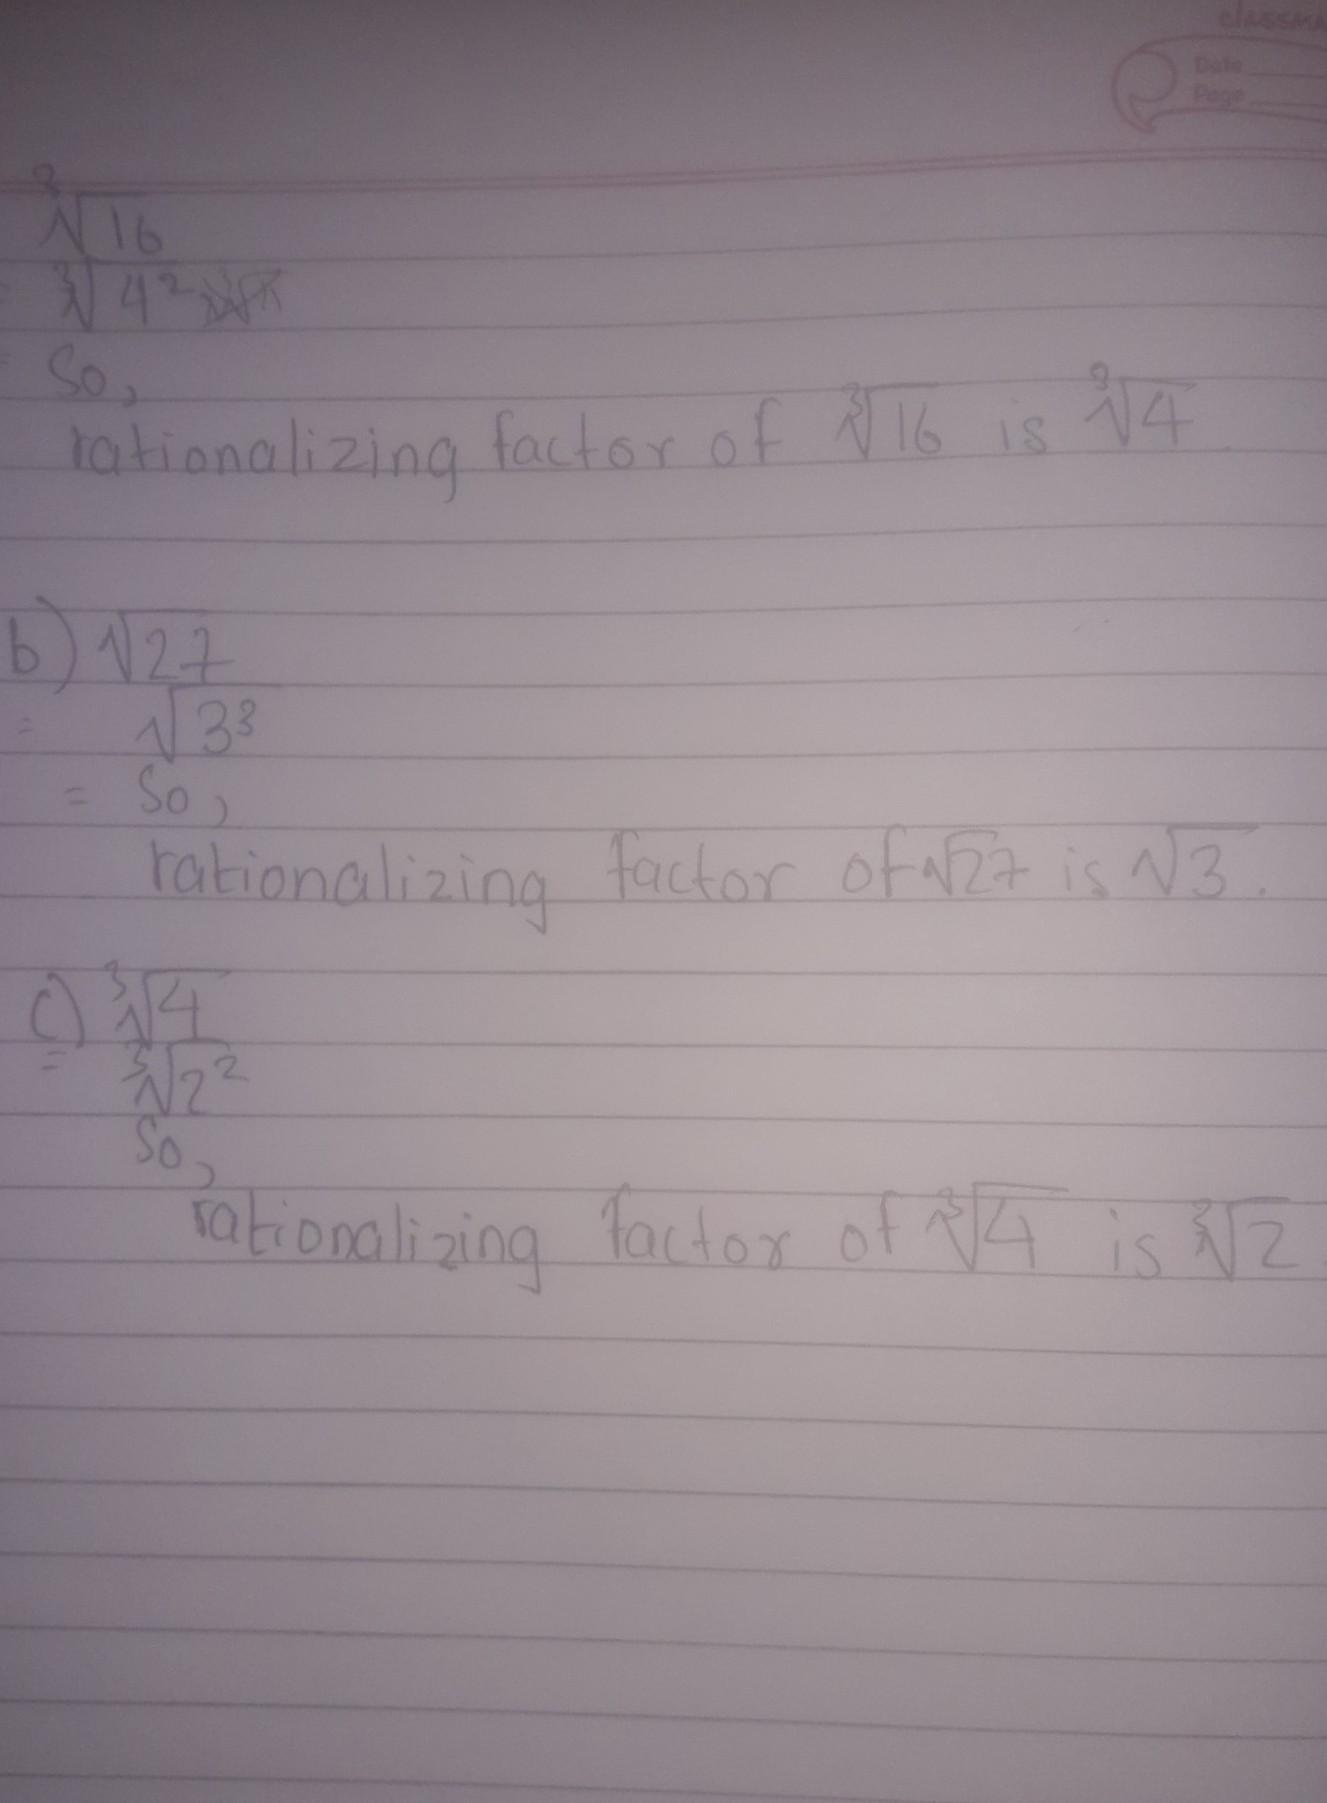 classma
Date
Page
∛16
= ∛4²
So,
rationalizing factor of ∛16 is ∛4
b) √27
= √3³
= So,
rationalizing factor of √27 is √3.
c) ∛4
= ∛2²
So,
rationalizing factor of ∛4 is ∛2